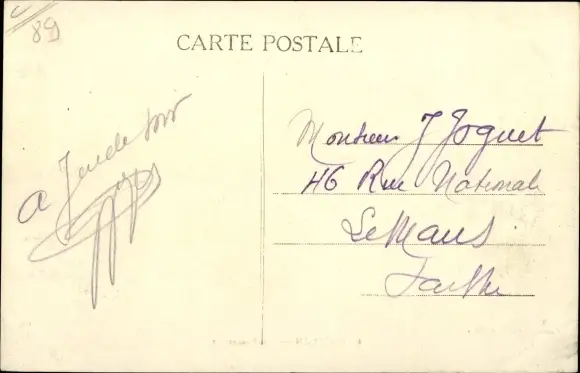 89
CARTE POSTALE
a Jeudi soir
Monsieur J Joquet
46 Rue Nationale
Le Mans
Sarthe